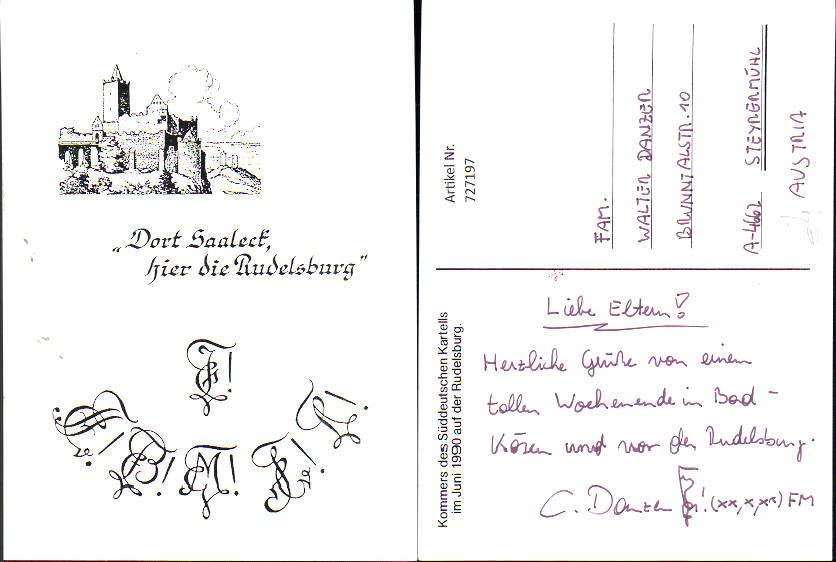 „Dort Saaleck,
hier die Rudelsburg"
Artikel Nr.
727197
FAM.
WALTER DANZER
BRUNNTALSTR. 10
A-4662 STEYRERMÜHL
AUSTRIA
Kommers des Süddeutschen Kartells
im Juni 1990 auf der Rudelsburg.
Liebe Eltern!
Herzliche Grüße von einem
tollen Wochenende in Bad-
Kösen und von der Rudelsburg.
C. Danzer (xx,x,xx) FM